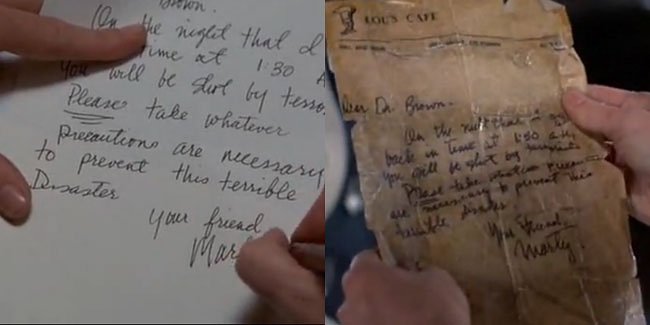 Brown.
On the night that I
time at 1:30 A
you will be shot by terro
Please take whatever
precautions are necessary
to prevent this terrible
Disaster
Your friend
Mar
LOU'S CAFE
Dear Dr. Brown.
On the night that I go
back in time at 1:30 A.M.
you will be shot by
Please take whatever precautions
are necessary to prevent this
terrible disaster
Your friend
Marty.